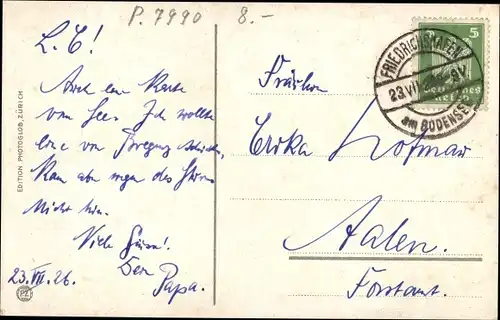 P. 7990
8.-
L. E!
Auch eine Karte
vom See. Ich wollte
eine von Bregenz schicken,
kam aber wegen des Sturms
nicht hin.
Viele Grüsse!
Dein
Papa.
23.VII.26.
EDITION PHOTOGLOB, ZÜRICH
PZ
FRIEDRICHSHAFEN
23 VII
am BODENSEE
5
Deutsches
Reich
Fräulein
Erika Hofmann
Aalen.
Forstamt.